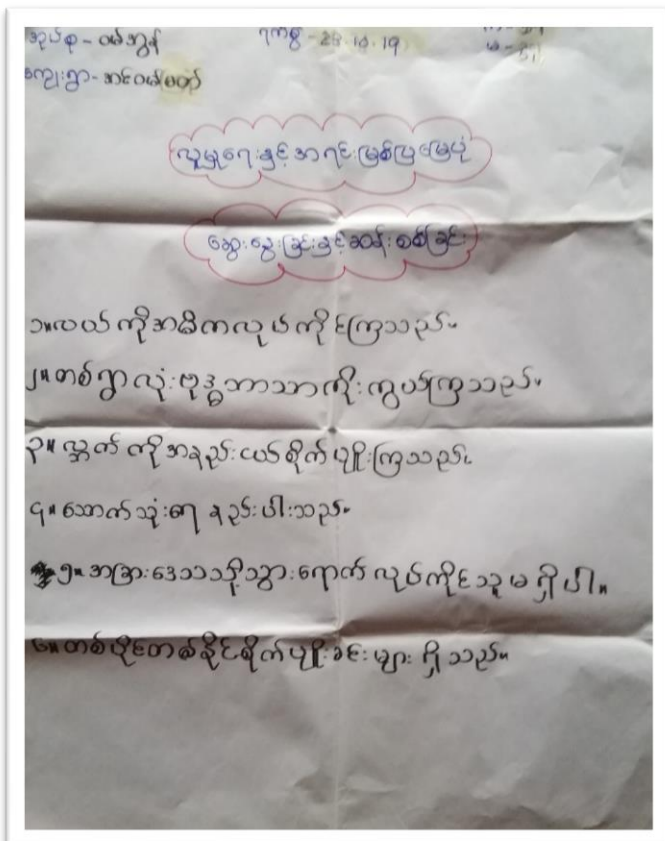 အုပ်စု - ဝမ်အွန် ရက်စွဲ - 25.10.19
ကျေးရွာ -
လူမှုရေးနှင့်အရင်းမြစ်ပြမြေပုံ
ဆွေးနွေးခြင်းနှင့်ဆန်းစစ်ခြင်း
၁။လယ်ကိုအဓိကလုပ်ကိုင်ကြသည်။
၂။တစ်ရွာလုံးဗုဒ္ဓဘာသာကိုးကွယ်ကြသည်။
၃။လ္ဘက်ကိုအနည်းငယ်စိုက်ပျိုးကြသည်။
၄။သောက်သုံးရေ နည်းပါးသည်။
၅။အခြားဒေသသို့သွားရောက်လုပ်ကိုင်သူမရှိပါ။
၆။တစ်ပိုင်တစ်နိုင်စိုက်ပျိုးခင်းများ ရှိသည်။